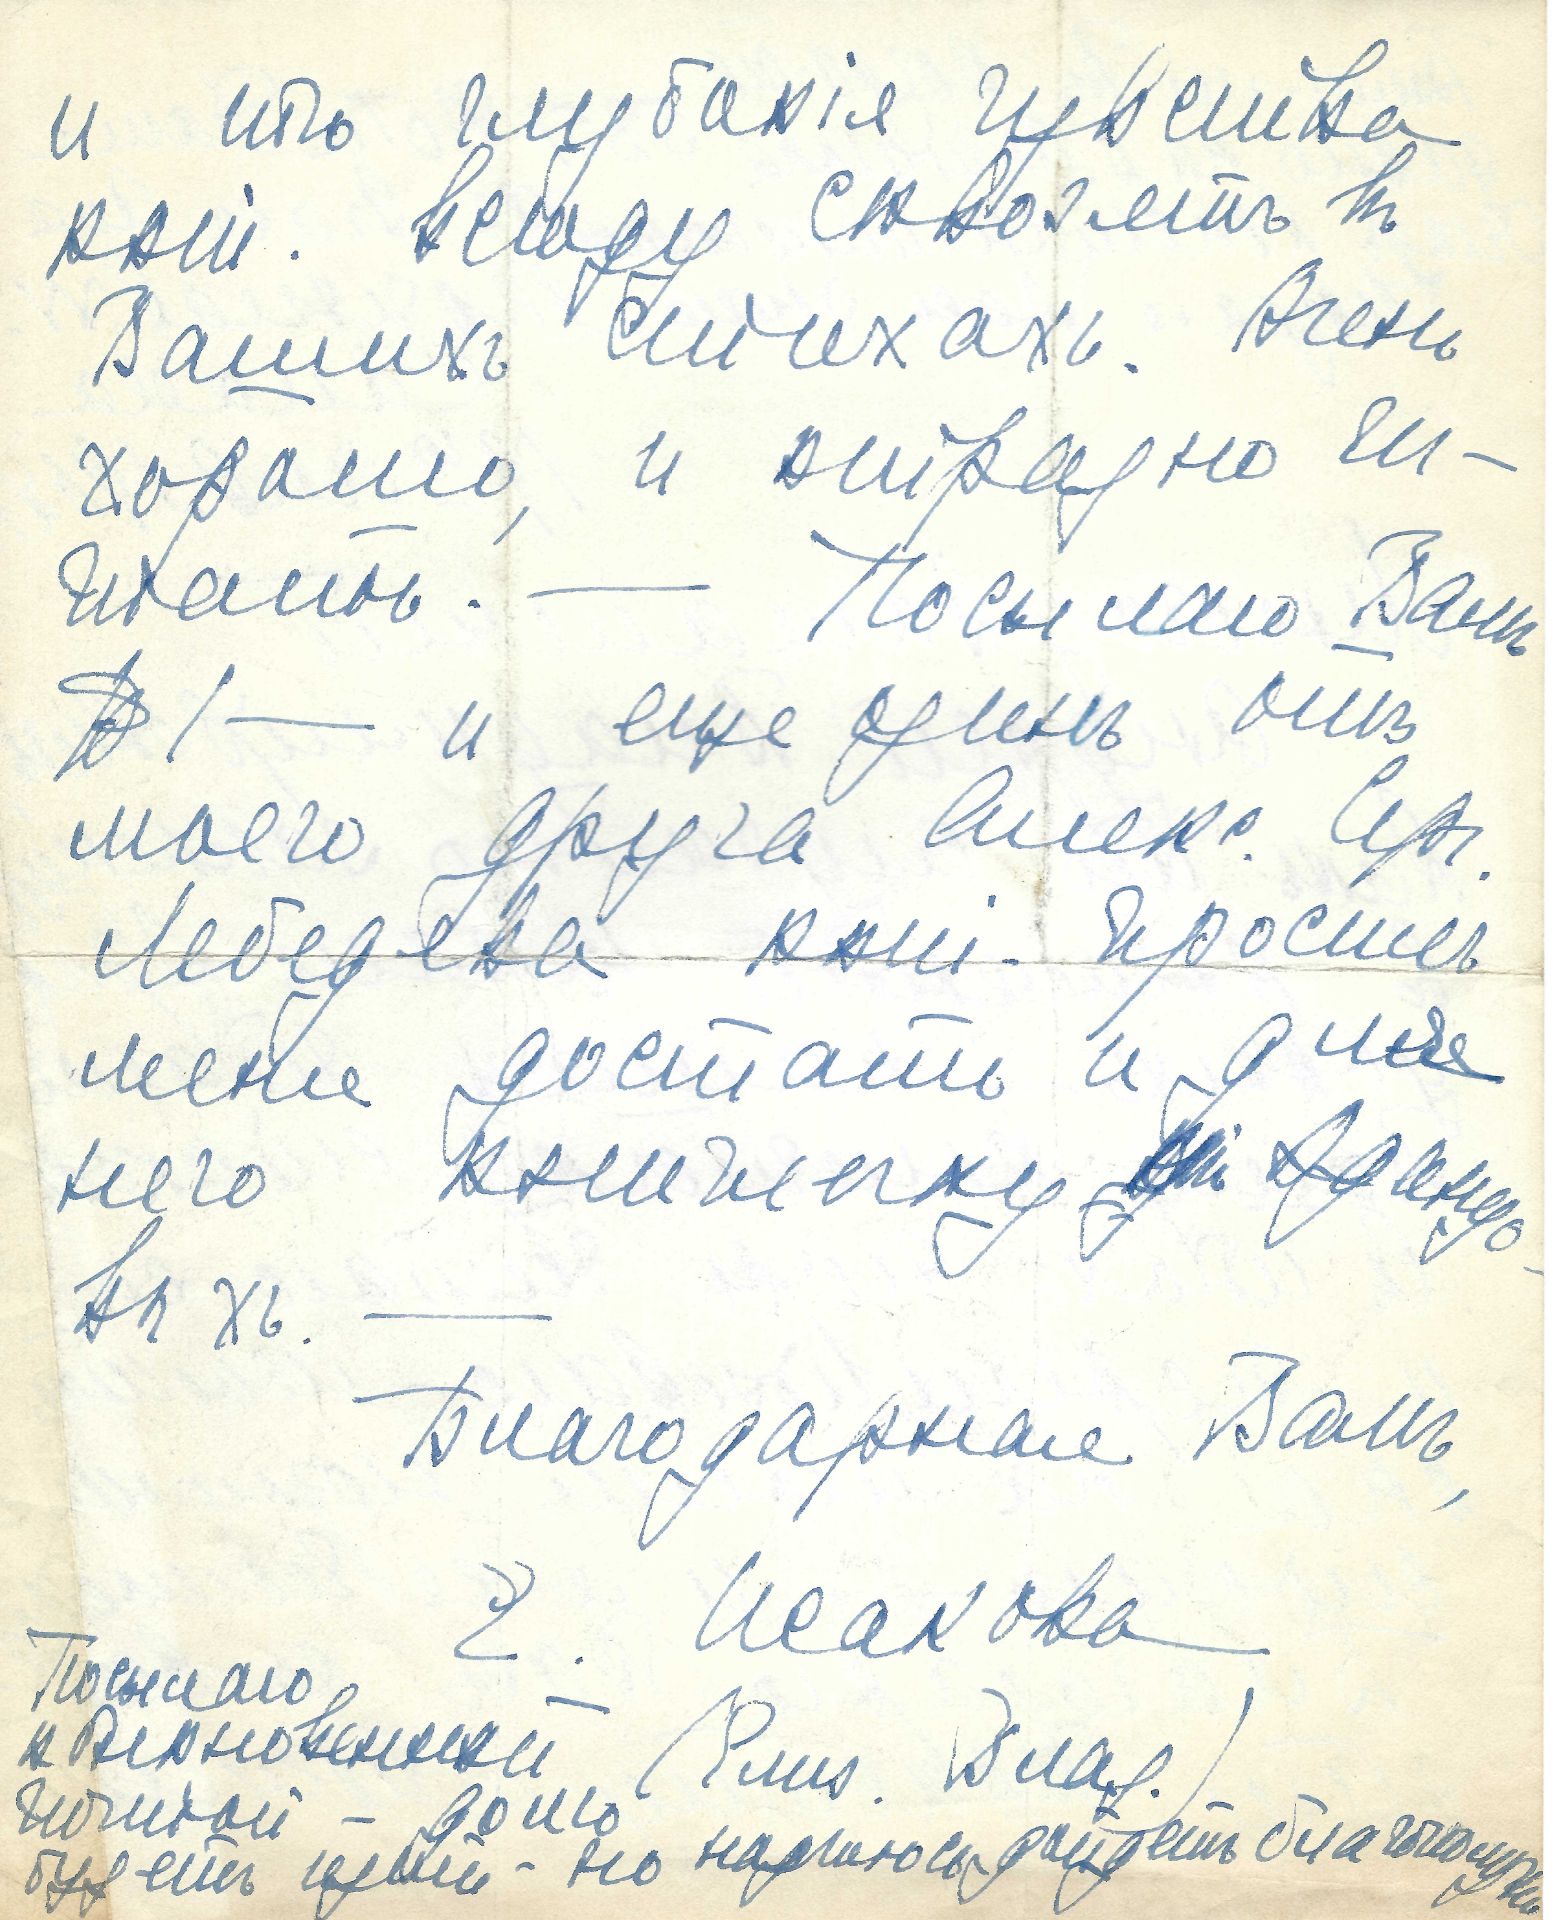 и что глубокія чувства
кот. всюду сквозятъ въ
Вашихъ стихахъ. Очень
хорошо, и отрадно чи-
тать. — Посылаю Вамъ
1 — и еще одинъ отъ
моего друга Алекс. Ив.
Лебедева кот. просилъ
меня достать и для
него книжечку
выхъ. —
Благодарная Вамъ,
Е. Исакова
(Елиз. Влад.)
Посылаю
обыкновенной
почтой — долго
будетъ идти — но надѣюсь дойдетъ благополучно